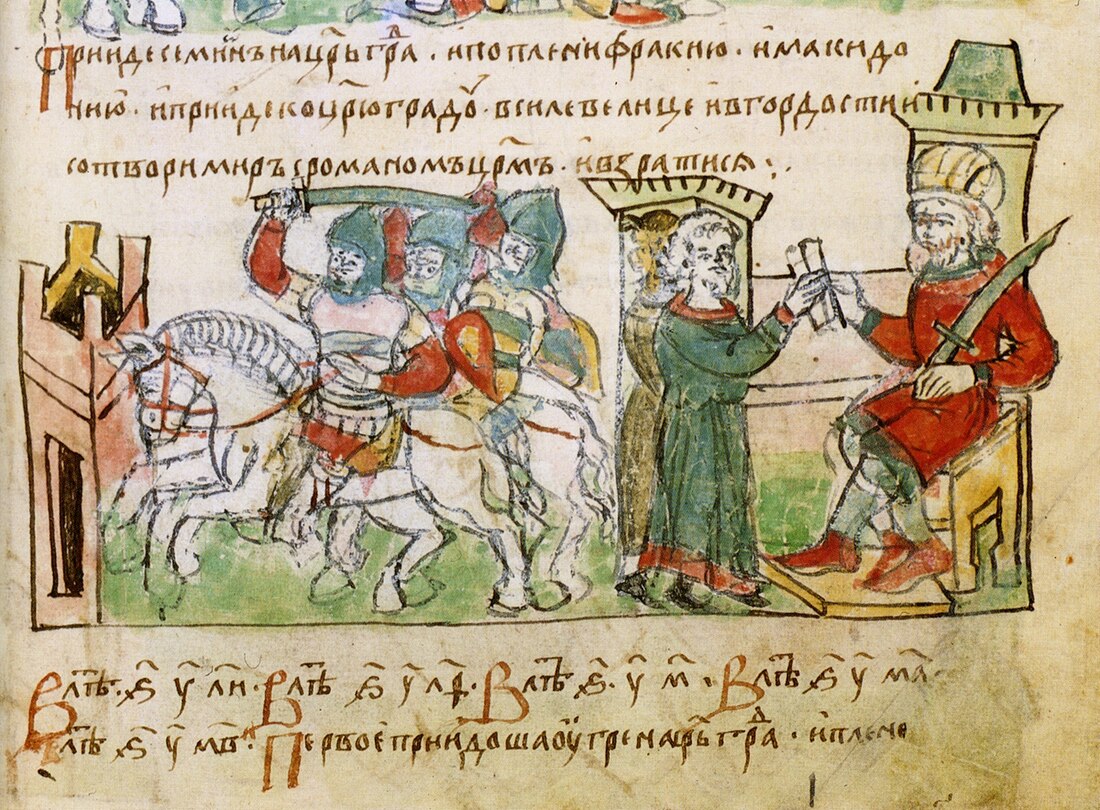 Прииде семионъ на цр҃ьграⷣ . ипоплени фракию . и макидо
нию . и прииде ко цр҃юградоу . в силе велице и в гордости и
сотвори миръ с романомъ цр҃мъ . и взратися :.
В лѣт҃ . ѕ҃ у҃ ли . В лѣт҃ ѕ҃ у҃ лѳ҃ . В лѣт҃ ѕ҃ . у҃ м҃ . В лѣт҃ ѕ҃ у҃ ма҃ .
В лѣт҃ ѕ҃ у҃ мв҃ . Первое приидоша оугре на цр҃ьграⷣ . и плене